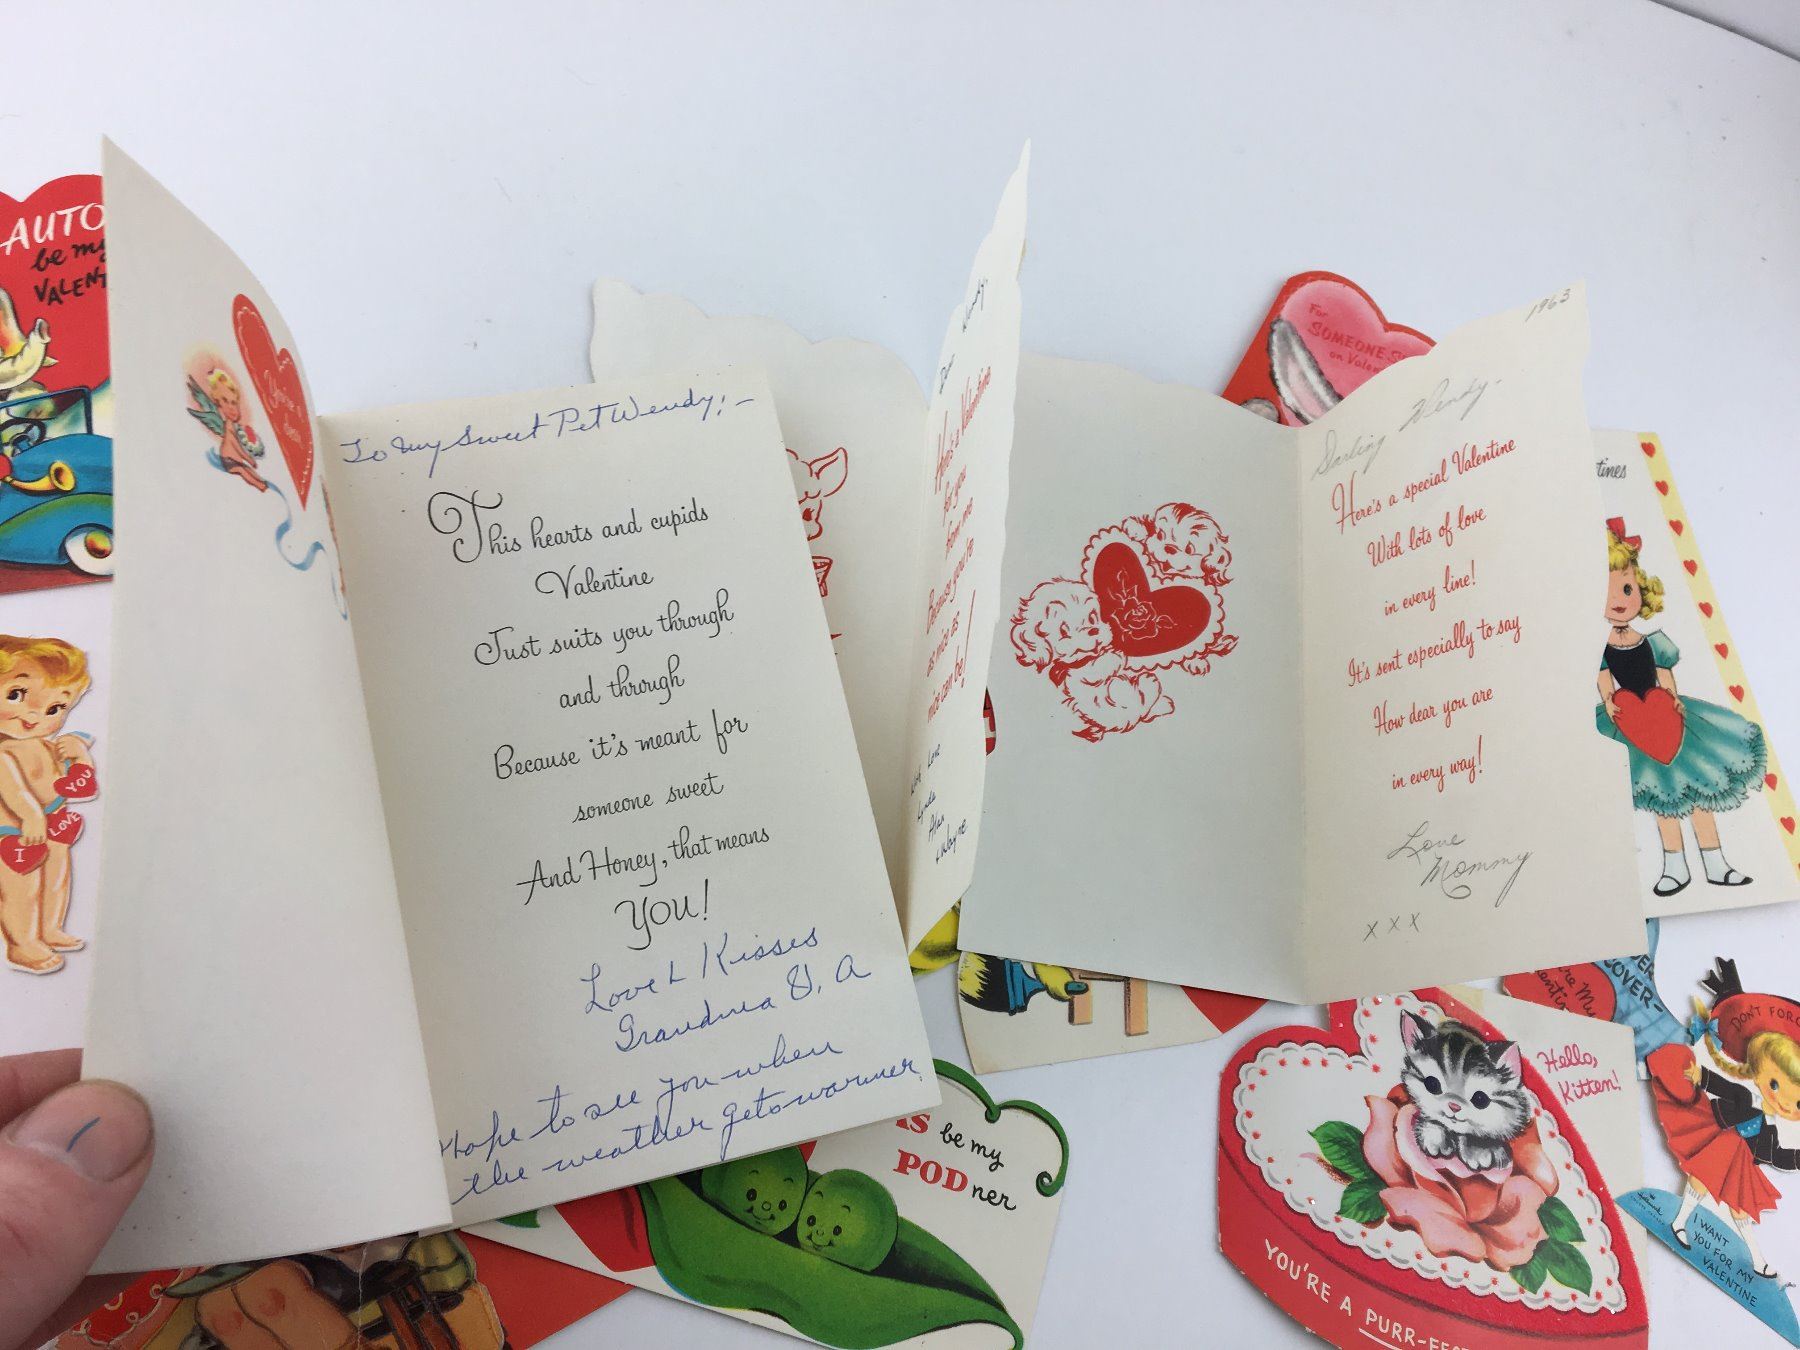 AUTO
be my
VALENT
YOU
LOVE
I
You're a
Dear
To My Sweet Pet Wendy; -
This hearts and cupids
Valentine
Just suits you through
and through
Because it's meant for
someone sweet
And Honey, that means
YOU!
Love & Kisses
Grandma
Hope to see you when
the weather gets warmer.
Dear Wendy,
Here's a Valentine
for you
from me
Because you're
as nice as
nice can be!
With Love
Lynda
Alan
Wayne
1963
Darling Wendy -
Here's a special Valentine
With lots of love
in every line!
It's sent especially to say
How dear you are
in every way!
Love
Mommy
x x x
For
SOMEONE S
on Valen
tines
AS be my
PODner
Hello,
Kitten!
YOU'RE A PURR-FE
OVER-
DON'T FORG
Hallmark
I WANT
YOU FOR MY
VALENTINE